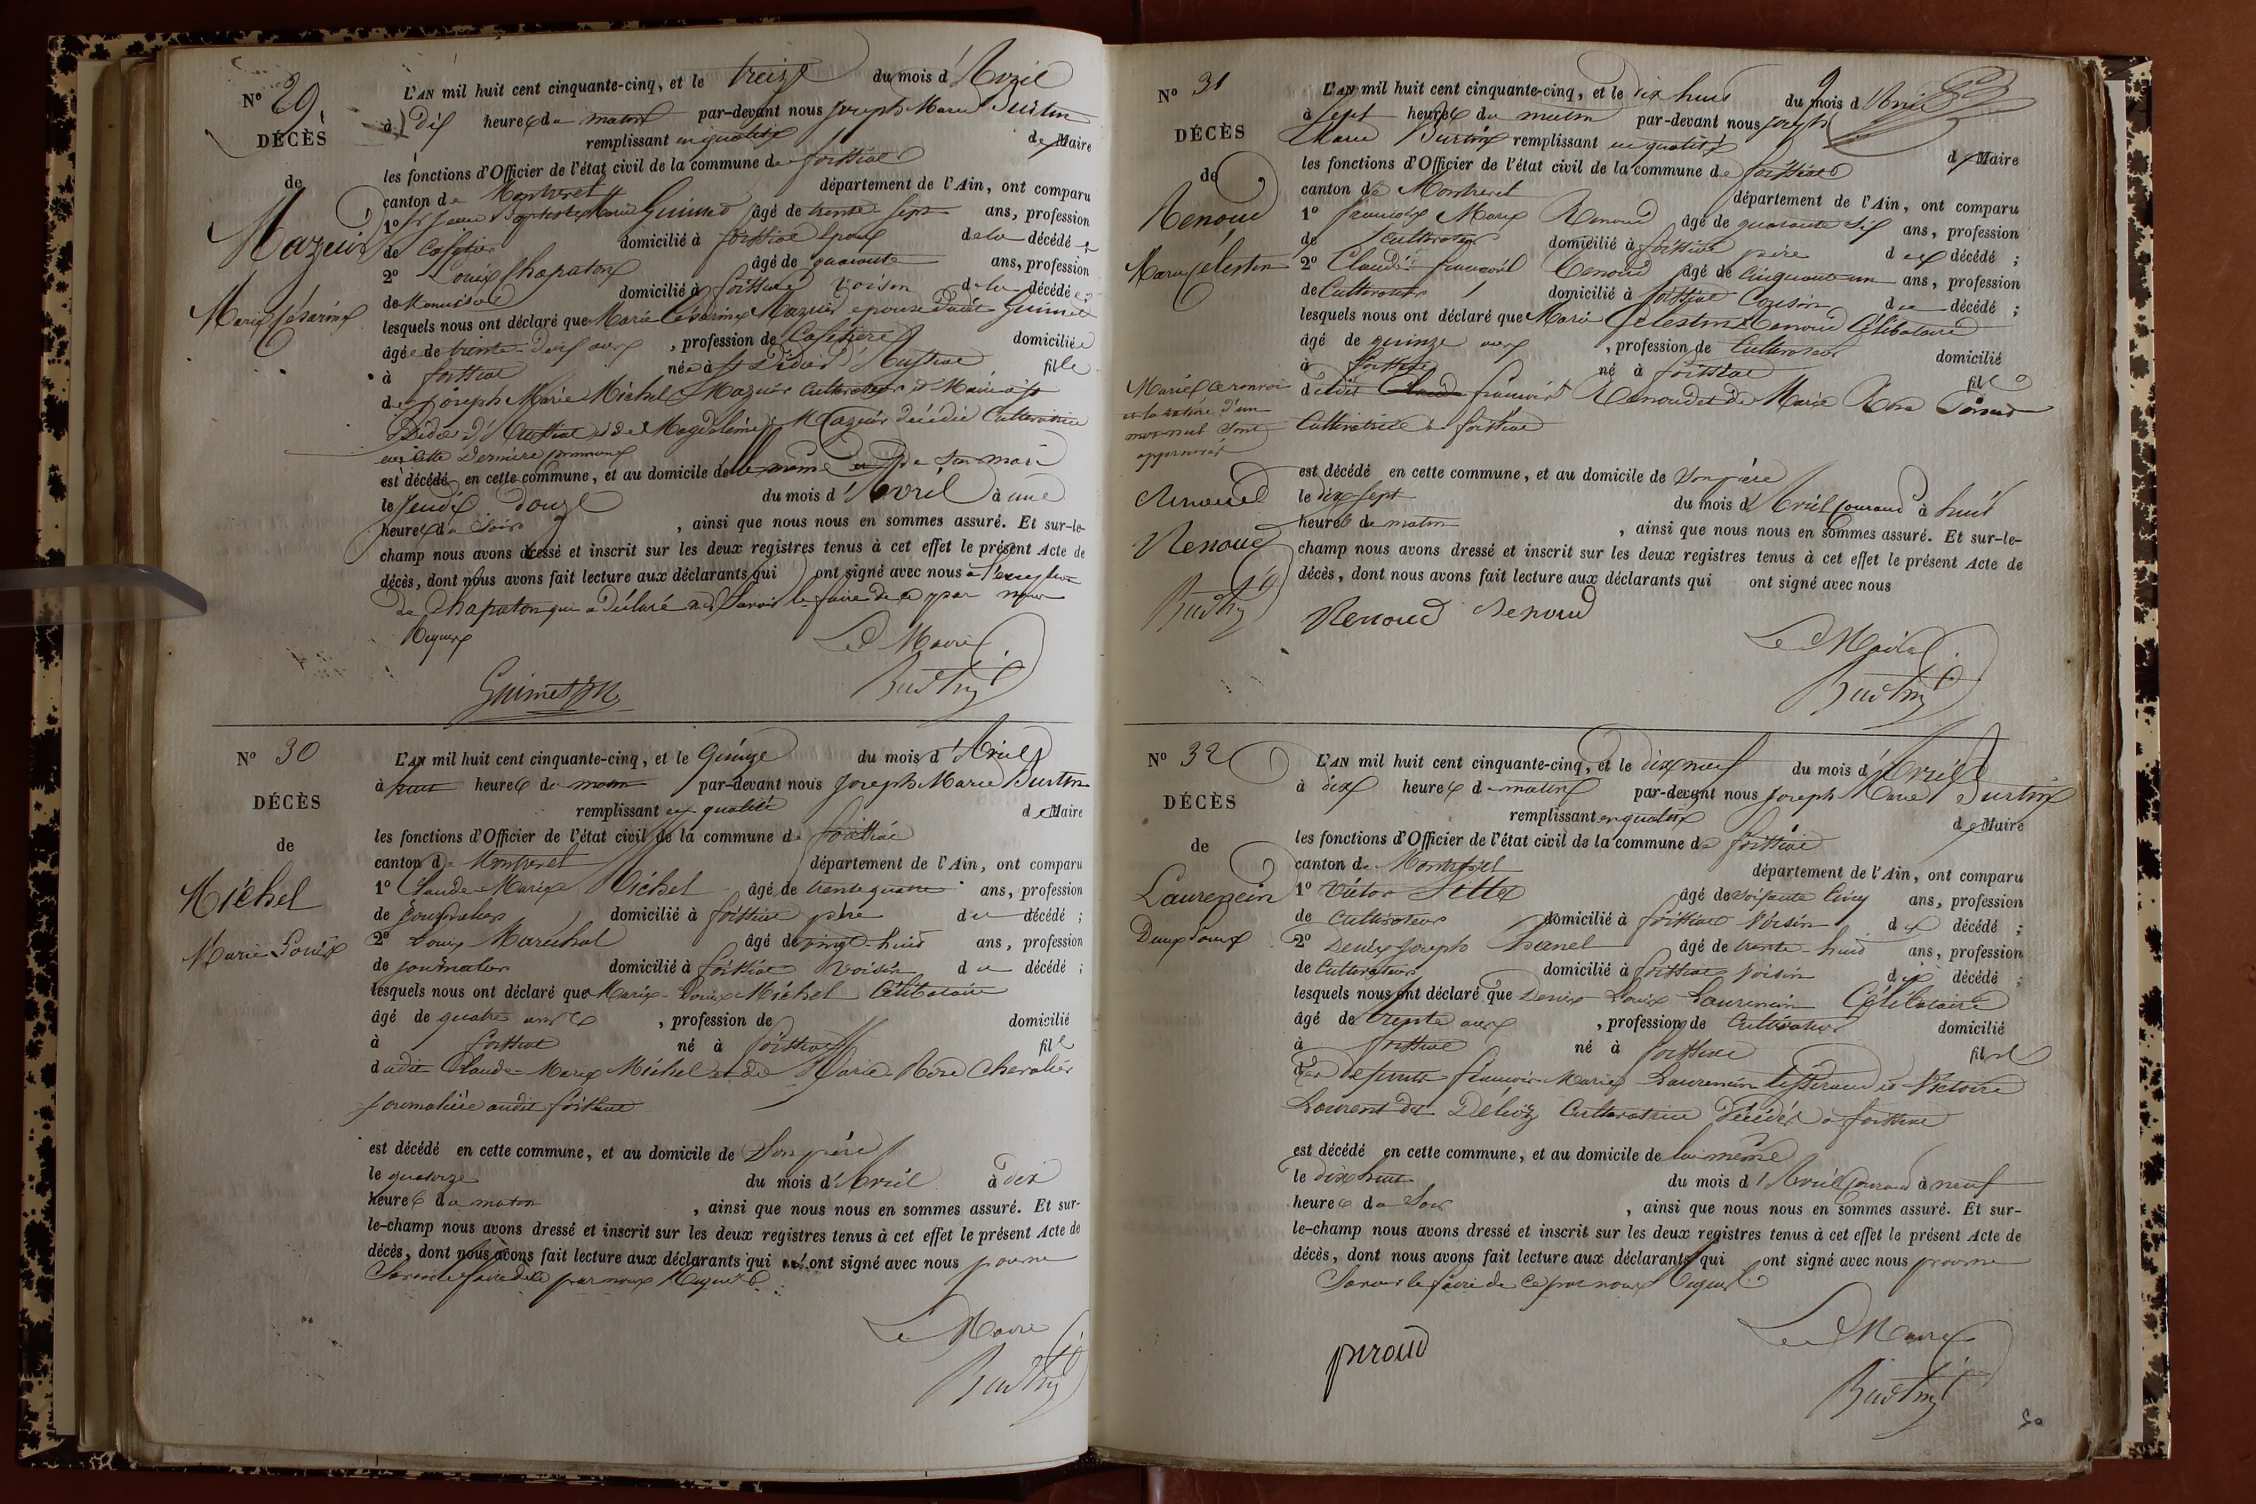 N° 29
DÉCÈS
de
Mazuir
Marie Césarine
L'AN mil huit cent cinquante-cinq, et le treize du mois d'Avril
à dix heures du matin par-devant nous Joseph Marie Burtin
remplissant en qualité de Maire
les fonctions d'Officier de l'état civil de la commune de foissiat
canton de Montrevel département de l'Ain, ont comparu
1° Sr Jean Baptiste Marie Guimet âgé de trente sept ans, profession
de Cafetier domicilié à foissiat époux de la décédée
2° Louis Chapaton âgé de quarante ans, profession
de domicilié à foissiat voisin de la décédée
lesquels nous ont déclaré que Marie Césarine Mazuir épouse dudit Guimet
âgée de trente-deux ans, profession de Cafetière domiciliée
à foissiat née à St Didier d'Aussiat fille
de Joseph Marie Michel Mazuir Cultivateur et Maire à St
Didier d'Aussiat et de Magdeleine Mazuir décédée Cultivatrice
en cette dernière commune
est décédé en cette commune, et au domicile de son mari
le Jeudi douze du mois d'Avril à une
heure du soir, ainsi que nous nous en sommes assuré. Et sur-le-
champ nous avons dressé et inscrit sur les deux registres tenus à cet effet le présent Acte de
décès, dont nous avons fait lecture aux déclarants qui ont signé avec nous à l'exception
de Chapaton qui a déclaré ne savoir le faire de ce par nous
Requis
Le Maire
Guimet
Burtin
N° 30
DÉCÈS
de
Michel
Marie Louis
L'AN mil huit cent cinquante-cinq, et le Quinze du mois d'Avril
à huit heures du matin par-devant nous Joseph Marie Burtin
remplissant en qualité de Maire
les fonctions d'Officier de l'état civil de la commune de foissiat
canton de Montrevel département de l'Ain, ont comparu
1° Claude-Marie Michel âgé de trente quatre ans, profession
de journalier domicilié à foissiat père du décédé ;
2° Louis Maréchal âgé de vingt-huit ans, profession
de journalier domicilié à foissiat voisin du décédé ;
lesquels nous ont déclaré que Marie-Louis Michel Célibataire
âgé de quatre ans, profession de domicilié
à foissiat né à foissiat fils
dudit Claude-Marie Michel et de Marie-Rose Chevalier
journalière audit foissiat
est décédé en cette commune, et au domicile de Son père
le quatorze du mois d'Avril à dix
heures du matin, ainsi que nous nous en sommes assuré. Et sur-
le-champ nous avons dressé et inscrit sur les deux registres tenus à cet effet le présent Acte de
décès, dont nous avons fait lecture aux déclarants qui n'ont signé avec nous pour ne
Savoir le faire de ce par nous Requis
Le Maire
Burtin
N° 31
DÉCÈS
de
Renoud
Marie Célestin
L'AN mil huit cent cinquante-cinq, et le dix huit du mois d'Avril
à sept heures du matin par-devant nous Joseph
Marie Burtin remplissant en qualité de Maire
les fonctions d'Officier de l'état civil de la commune de foissiat
canton de Montrevel département de l'Ain, ont comparu
1° françois Marie Renoud âgé de quarante six ans, profession
de Cultivateur domicilié à foissiat père du décédé ;
2° Claude-françois Renoud âgé de cinquante-un ans, profession
de Cultivateur domicilié à foissiat Cousin du décédé ;
lesquels nous ont déclaré que Marie Célestin Renoud Célibataire
âgé de quinze ans, profession de Cultivateur domicilié
à foissiat né à foissiat fils
dudit françois Renoud et de Marie Rose
Cultivatrice à foissiat
Marie, Ce renvoi
et la rature d'un
mot nul sont
approuvés
Renoud
Renoud
Burtin
est décédé en cette commune, et au domicile de Son père
le dix sept du mois d'Avril Courant à huit
heures du matin, ainsi que nous nous en sommes assuré. Et sur-le-
champ nous avons dressé et inscrit sur les deux registres tenus à cet effet le présent Acte de
décès, dont nous avons fait lecture aux déclarants qui ont signé avec nous
Renoud Renoud
Le Maire
Burtin
N° 32
DÉCÈS
de
Laurencin
Denis Louis
L'AN mil huit cent cinquante-cinq, et le dix neuf du mois d'Avril
à dix heures du matin par-devant nous Joseph Marie Burtin
remplissant en qualité de Maire
les fonctions d'Officier de l'état civil de la commune de foissiat
canton de Montrevel département de l'Ain, ont comparu
1° Victor âgé de soixante Cinq ans, profession
de Cultivateur domicilié à foissiat Voisin du décédé ;
2° Denis Joseph âgé de trente-huit ans, profession
de Cultivateur domicilié à foissiat voisin du décédé ;
lesquels nous ont déclaré que Denis Louis Laurencin Célibataire
âgé de trente ans, profession de Cultivateur domicilié
à foissiat né à foissiat fils
des défunts françois-Marie Laurencin tisserand et Victoire
Laurent Cultivatrice Décédés à foissiat
est décédé en cette commune, et au domicile de lui même
le dix huit du mois d'Avril Courant à neuf
heures du Soir, ainsi que nous nous en sommes assuré. Et sur-
le-champ nous avons dressé et inscrit sur les deux registres tenus à cet effet le présent Acte de
décès, dont nous avons fait lecture aux déclarants qui ont signé avec nous pour ne
Savoir le faire de Ce par nous Requis
Le Maire
Burtin